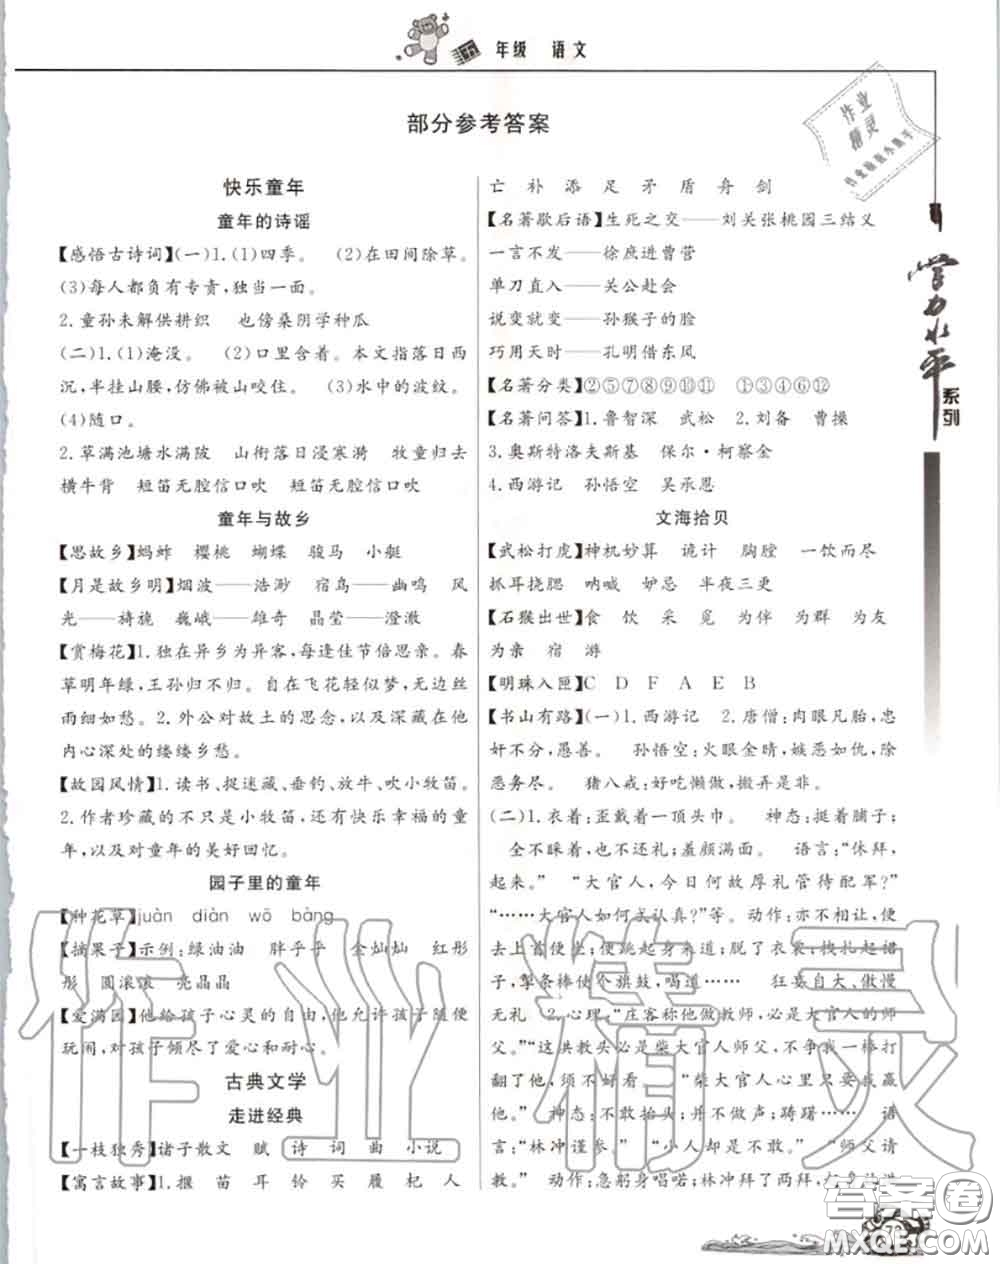 五 年级 语文
部分参考答案
快乐童年
童年的诗谣
【感悟古诗词】(一)1.(1)四季。 (2)在田间除草。
(3)每人都负有专责,独当一面。
2.童孙未解供耕织 也傍桑阴学种瓜
(二)1.(1)淹没。 (2)口里含着。本文指落日西
沉,半挂山腰,仿佛被山咬住。 (3)水中的波纹。
(4)随口。
2.草满池塘水满陂 山衔落日浸寒漪 牧童归去
横牛背 短笛无腔信口吹 短笛无腔信口吹
童年与故乡
【思故乡】蚂蚱 樱桃 蝴蝶 骏马 小艇
【月是故乡明】烟波——浩渺 宿鸟——幽鸣 风
光——旖旎 巍峨——雄奇 晶莹——澄澈
【赏梅花】1.独在异乡为异客,每逢佳节倍思亲。春
草明年绿,王孙归不归。自在飞花轻似梦,无边丝
雨细如愁。2.外公对故土的思念,以及深藏在他
内心深处的缕缕乡愁。
【故园风情】1.读书、捉迷藏、垂钓、放牛、吹小牧笛。
2.作者珍藏的不只是小牧笛,还有快乐幸福的童
年,以及对童年的美好回忆。
园子里的童年
【种花草】juàn diàn wō bàng
【摘果子】示例:绿油油 胖乎乎 金灿灿 红彤
彤 圆滚滚 亮晶晶
【爱满园】他给孩子心灵的自由,他允许孩子随便
玩闹,对孩子倾尽了爱心和耐心。
古典文学
走进经典
【一枝独秀】诸子散文 赋 诗 词 曲 小说
【寓言故事】1.揠 苗 耳 铃 买 履 杞 人
亡 补 添 足 矛 盾 舟 剑
【名著歇后语】生死之交——刘关张桃园三结义
一言不发——徐庶进曹营
单刀直入——关公赴会
说变就变——孙猴子的脸
巧用天时——孔明借东风
【名著分类】②⑤⑦⑧⑨⑩⑪ ①③④⑥⑫
【名著问答】1.鲁智深 武松 2.刘备 曹操
3.奥斯特洛夫斯基 保尔·柯察金
4.西游记 孙悟空 吴承恩
文海拾贝
【武松打虎】神机妙算 诡计 胸膛 一饮而尽
抓耳挠腮 呐喊 妒忌 半夜三更
【石猴出世】食 饮 采 觅 为伴 为群 为友
为亲 宿 游
【明珠入匣】C D F A E B
【书山有路】(一)1.西游记 2.唐僧:肉眼凡胎,忠
奸不分,愚善。 孙悟空:火眼金睛,嫉恶如仇,除
恶务尽。 猪八戒:好吃懒做,搬弄是非。
(二)1.衣着:歪戴着一顶头巾。 神态:挺着脯子;
全不睬着,也不还礼;羞颜满面。 语言:“休拜,
起来。” “大官人,今日何故厚礼管待配军?”
“……大官人如何忒认真?”等。动作:亦不相让,便
去上首便坐;便跳起身来道;脱了衣裳,拽扎起裙
子,掣条棒使个旗鼓,喝道…… 狂妄自大、傲慢
无礼 2.心理:“庄客称他做教师,必是大官人的师
父。”“这洪教头必是柴大官人师父,不争我一棒打
翻了他,不好看。” “柴大官人心里只要我赢
他。” 神态:不敢抬头;并不做声;踌躇…… 语
言:“林冲谨参。” “小人却是不敢。” “师父请
教。” 动作:急躬身唱喏;林冲拜了两拜,起身让洪
学力水平
系列
作业
精灵
作业精灵
答案卷
MXQE.COM